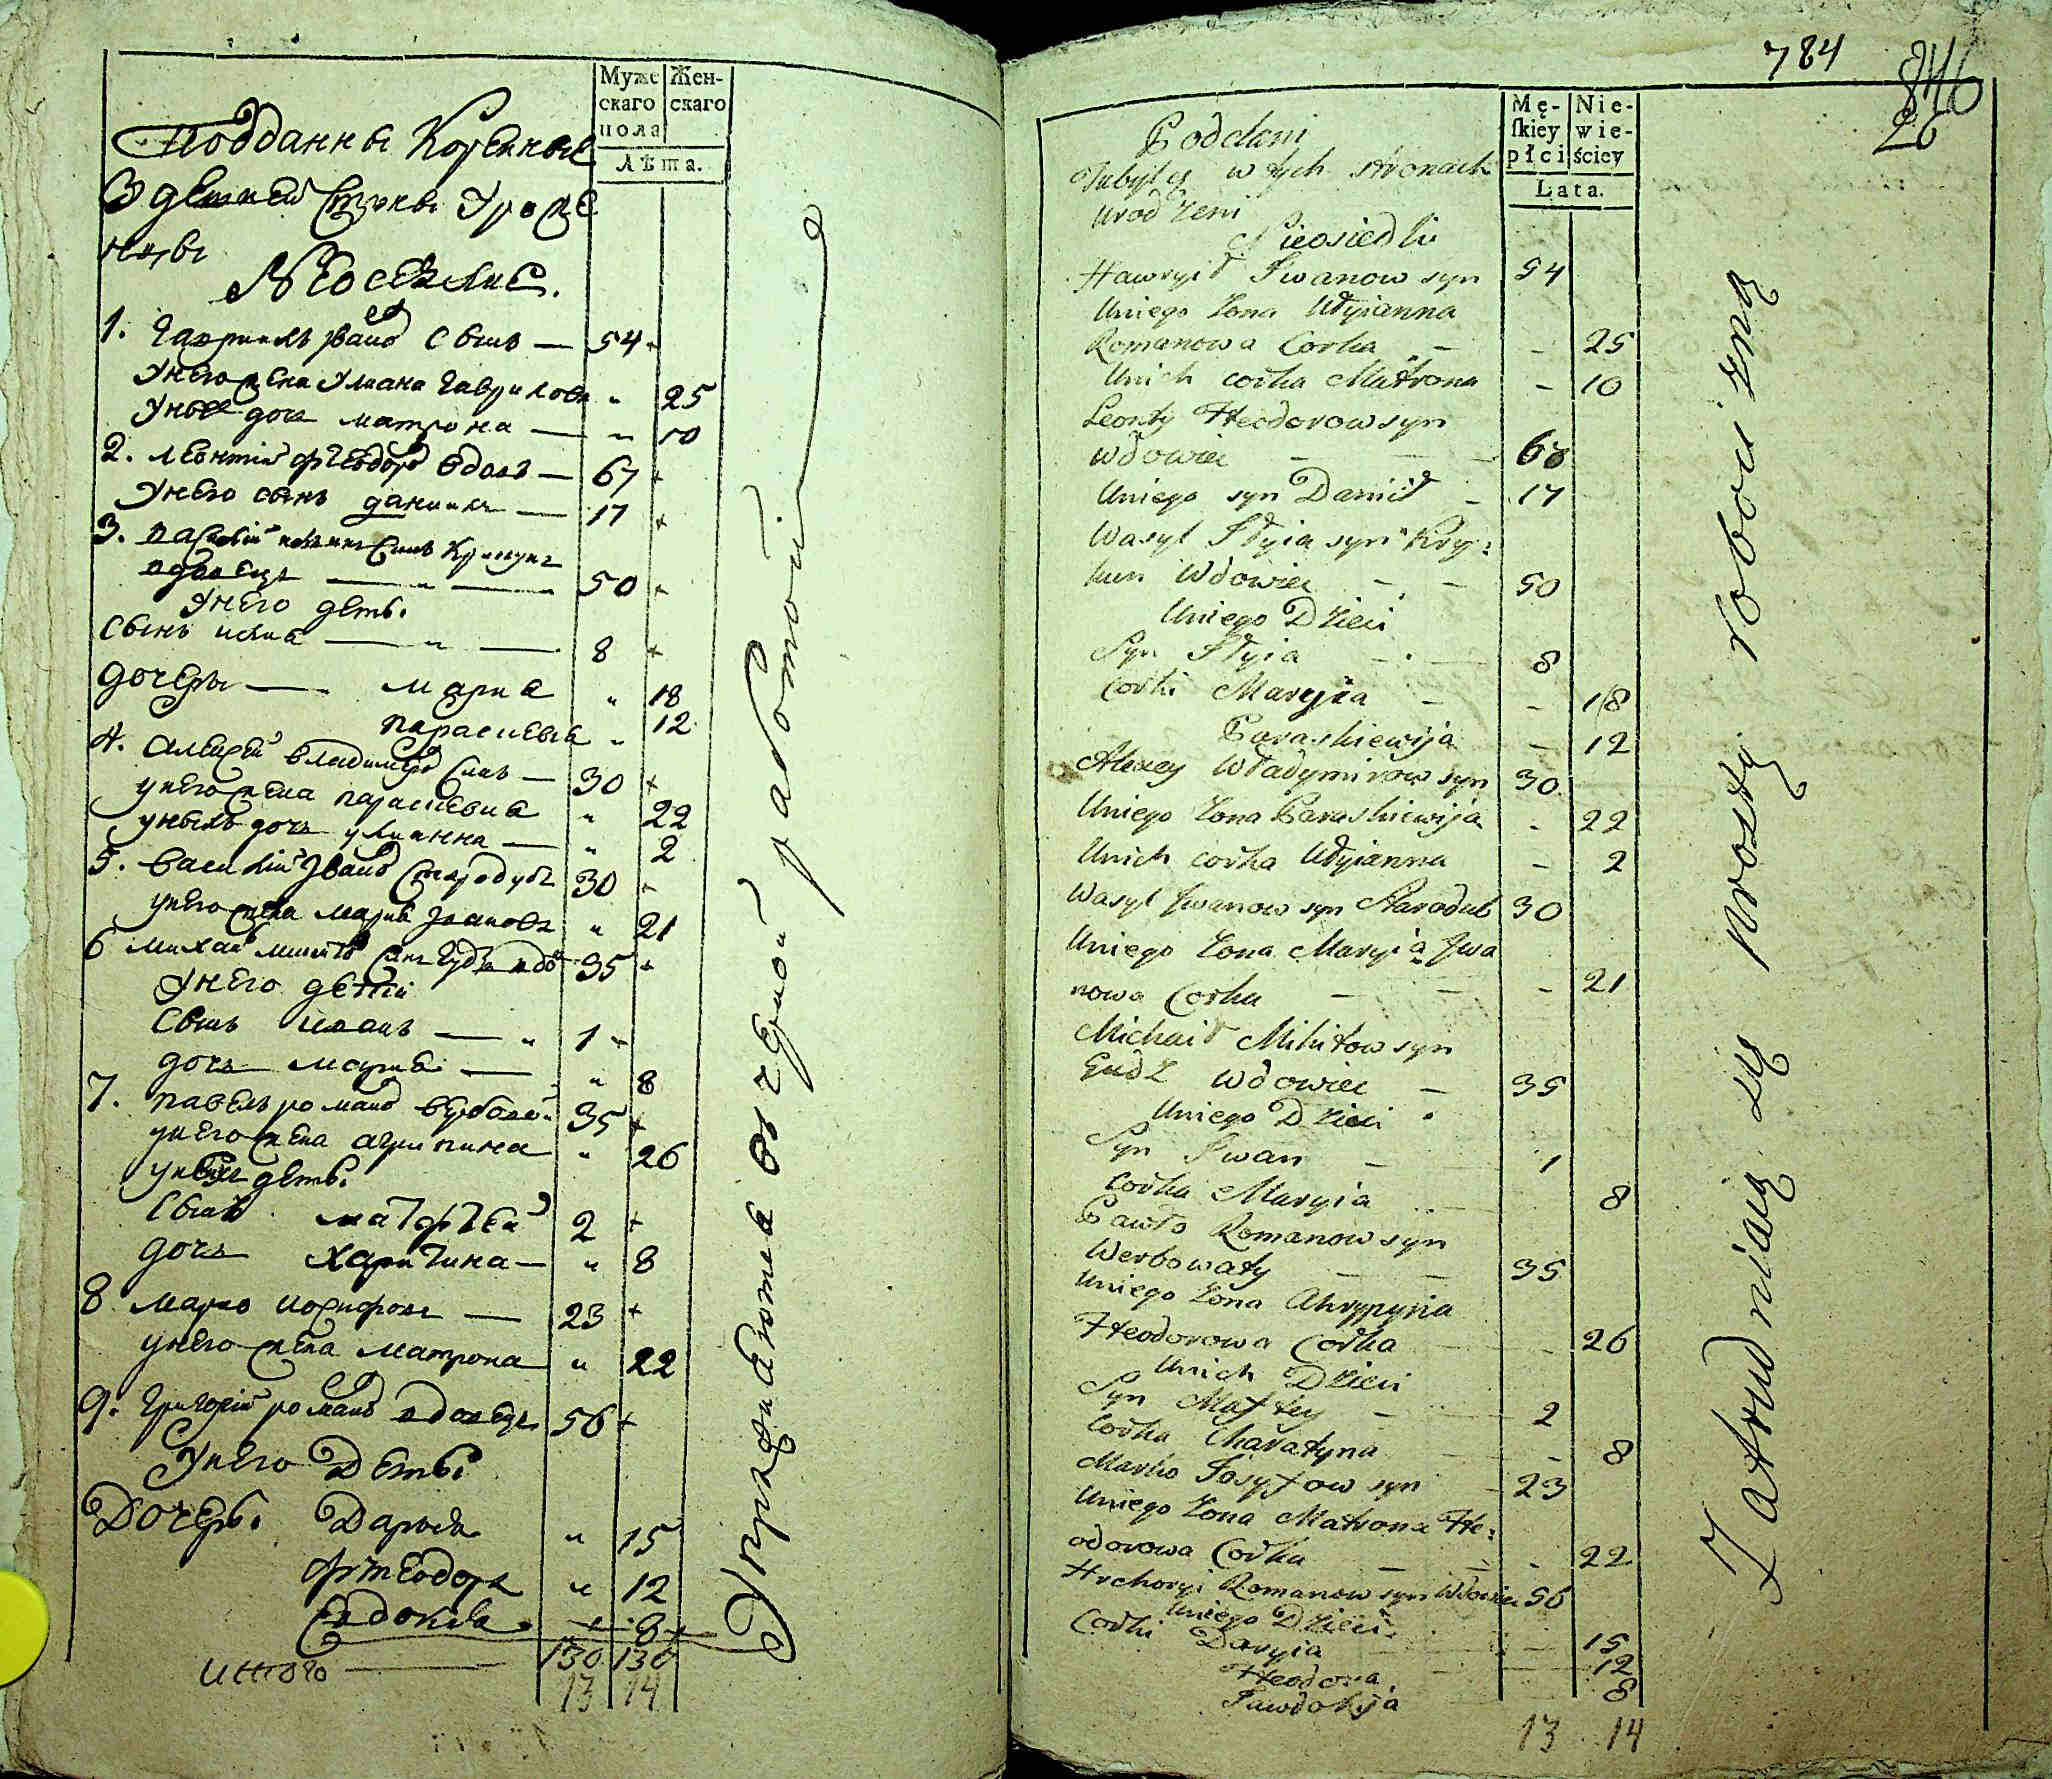 Муже Жен-
скаго скаго
пола
Лѣта.
Подданны Коренные
Здешней Сторны Уроже
нцы
Неоселые.
1. Гаврыилъ Ивановъ сынъ — 54
У него жена Улиана Гаврилова „ 25
У ных дочь матрона — „ 10
2. Леонтий Фтеодоров вдовъ — 67
У него сынъ данило — 17
3. Василий илиинъ Сынъ Крикунъ
вдовецъ — „ — 50
У него деты.
Сынъ илиа — „ — 8
Дочеры — мария „ 18
параскевиа „ 12
4. Алексей владимеров Сынъ — 30
у него жена параскевиа „ 22
у ныхъ дочь улианна — „ 2
5. Василий Иванов Стародубъ 30
у него жена мариа Иванова „ 21
6 михайло микитов Сынъ Гудзь вдов 35
У него дети
Сынъ иванъ — „ 1
дочь мариа — „ 8
7. павелъ романов вербовай 35
у него жена агрипина „ 26
у ныхъ деты.
Сынъ матфтей 2
дочь харитина — „ 8
8 марко иосифовъ — 23
у него жена матрона „ 22
9. Григорий романов вдовецъ 56
У него Деты
Дочеры. Дарыя „ 15
Фтеодора „ 12
Евдокия „ 8
Итого — 130 130
13 14
Упражняются в вечерной работой
784
846
26
Mę- Nie-
skiey wie-
płci ściey
Lata.
Poddani
Tubylcy w tych stronach
urodzeni
Nieosiedli
Hawryił Iwanow syn 54
U niego żona Ułyianna
Romanowa Corka — - 25
U nich corka Matrona - 10
Leonty Heodorow syn
Wdowiec — 67
U niego syn Danił - 17
Wasyl Iłyia syn Kry:
kun Wdowiec - - 50
U niego Dzieci
Syn Iłyia - — 8
Corki Maryia - - 18
Paraskiewija - 12
Alexey Władymirow syn 30
U niego żona Paraskiewija - 22
U nich corka Ułyianna - 2
Wasyl Iwanow syn Starodub 30
U niego żona Maryia Iwa
nowa Corka — - - 21
Michaił Mikitow syn
Gudz Wdowiec - 35
U niego Dzieci
Syn Iwan - 1
Corka Maryia 8
Pawło Romanow syn
Werbowaty - - 35
U niego żona Ahrypyna
Heodorowa Corka - 26
U nich Dzieci
Syn Matfiey - 2
Corka Charatyna - 8
Marko Josyfow syn - 23
U niego żona Matrona He:
odorowa Corka - - - 22
Hrehoryi Romanow syn Wdowiec 56
U niego Dzieci
Corki Daryia - 15
Heodora 12
Jawdokija 8
13 14
Zatrudniaią się prostą robocizną